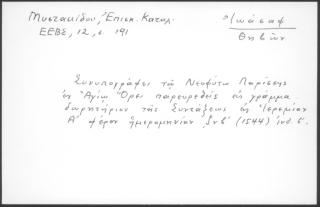 Μυστακίδου, Ἐπισκ. Κατάλ.
ΕΕΒΣ, 12, σ. 191
Ἰωάσαφ
Θηβῶν
Συνυπογράφει τῷ Νεοφύτῳ Παρίσης
ἐν Ἁγίῳ Ὄρει παρευρεθεὶς εἰς γράμμα
δωρητήριον τῆς Συντάξεως ἐπὶ Ἱερεμίου
Α΄ φέρον ἡμερομηνίαν ζνβ΄ (1544) ἰνδ.